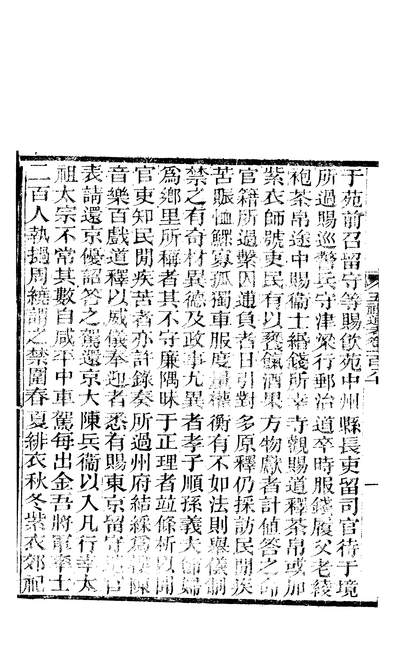 于苑前召留守等賜飲苑中州縣長吏留司官待于境
所過賜巡警兵守津梁行郵治道卒時服錢履父老綾
袍茶帛途中賜衛士緡錢所幸寺觀賜道釋茶帛或加
紫衣師號吏民有以饔餼酒果方物獻者計值答之命
官籍所過繫囚逋負者日引對多原釋仍採訪民間疾
苦賑恤鰥寡孤獨車服度量權衡有不如法則舉儀制
禁之有奇材異德及政事尤異者孝子順孫義夫節婦
為鄉里所稱者其不守廉隅昧于正理者並條析以聞
官吏知民間疾苦者亦許錄奏所過州府結綵為樓陳
音樂百戲道釋以威儀奉迎者悉有賜東京留守遣官
表請還京優詔答之駕還京大陳兵衛以入凡行幸太
祖太宗不常其數自咸平中車駕每出金吾將軍率士
二百人執撾周繞謂之禁圍春夏緋衣秋冬紫衣郊祀